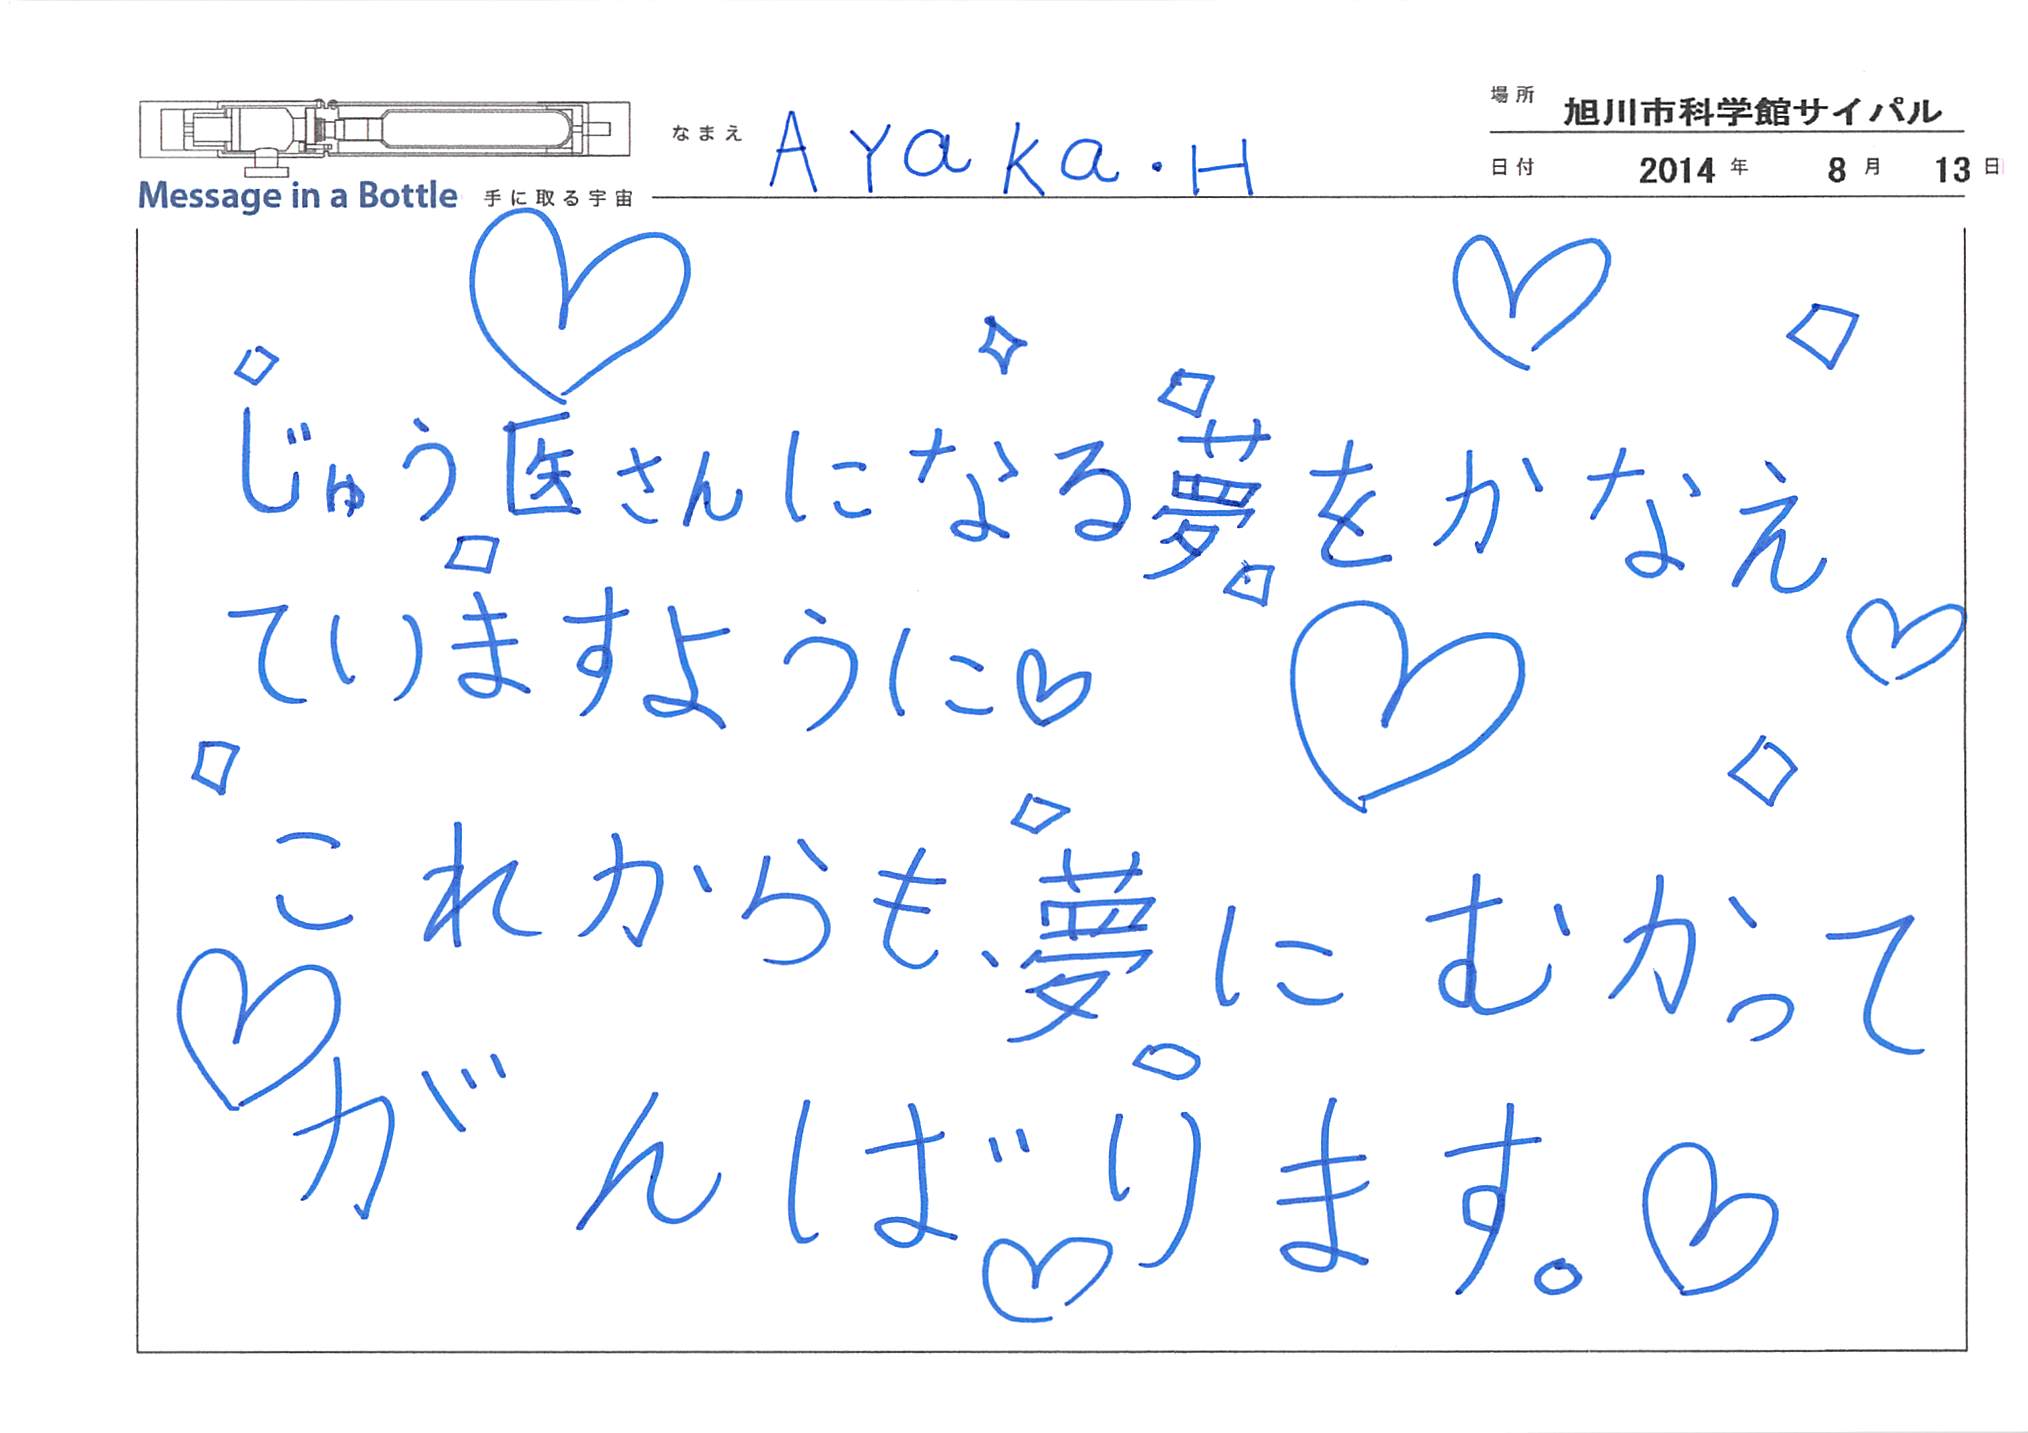 場所 旭川市科学館サイパル
なまえ AYaKa・H
日付 2014年 8月 13日
Message in a Bottle 手に取る宇宙
じゅう医さんになる夢をかなえ
ていますように♡
これからも、夢にむかって
がんばります。